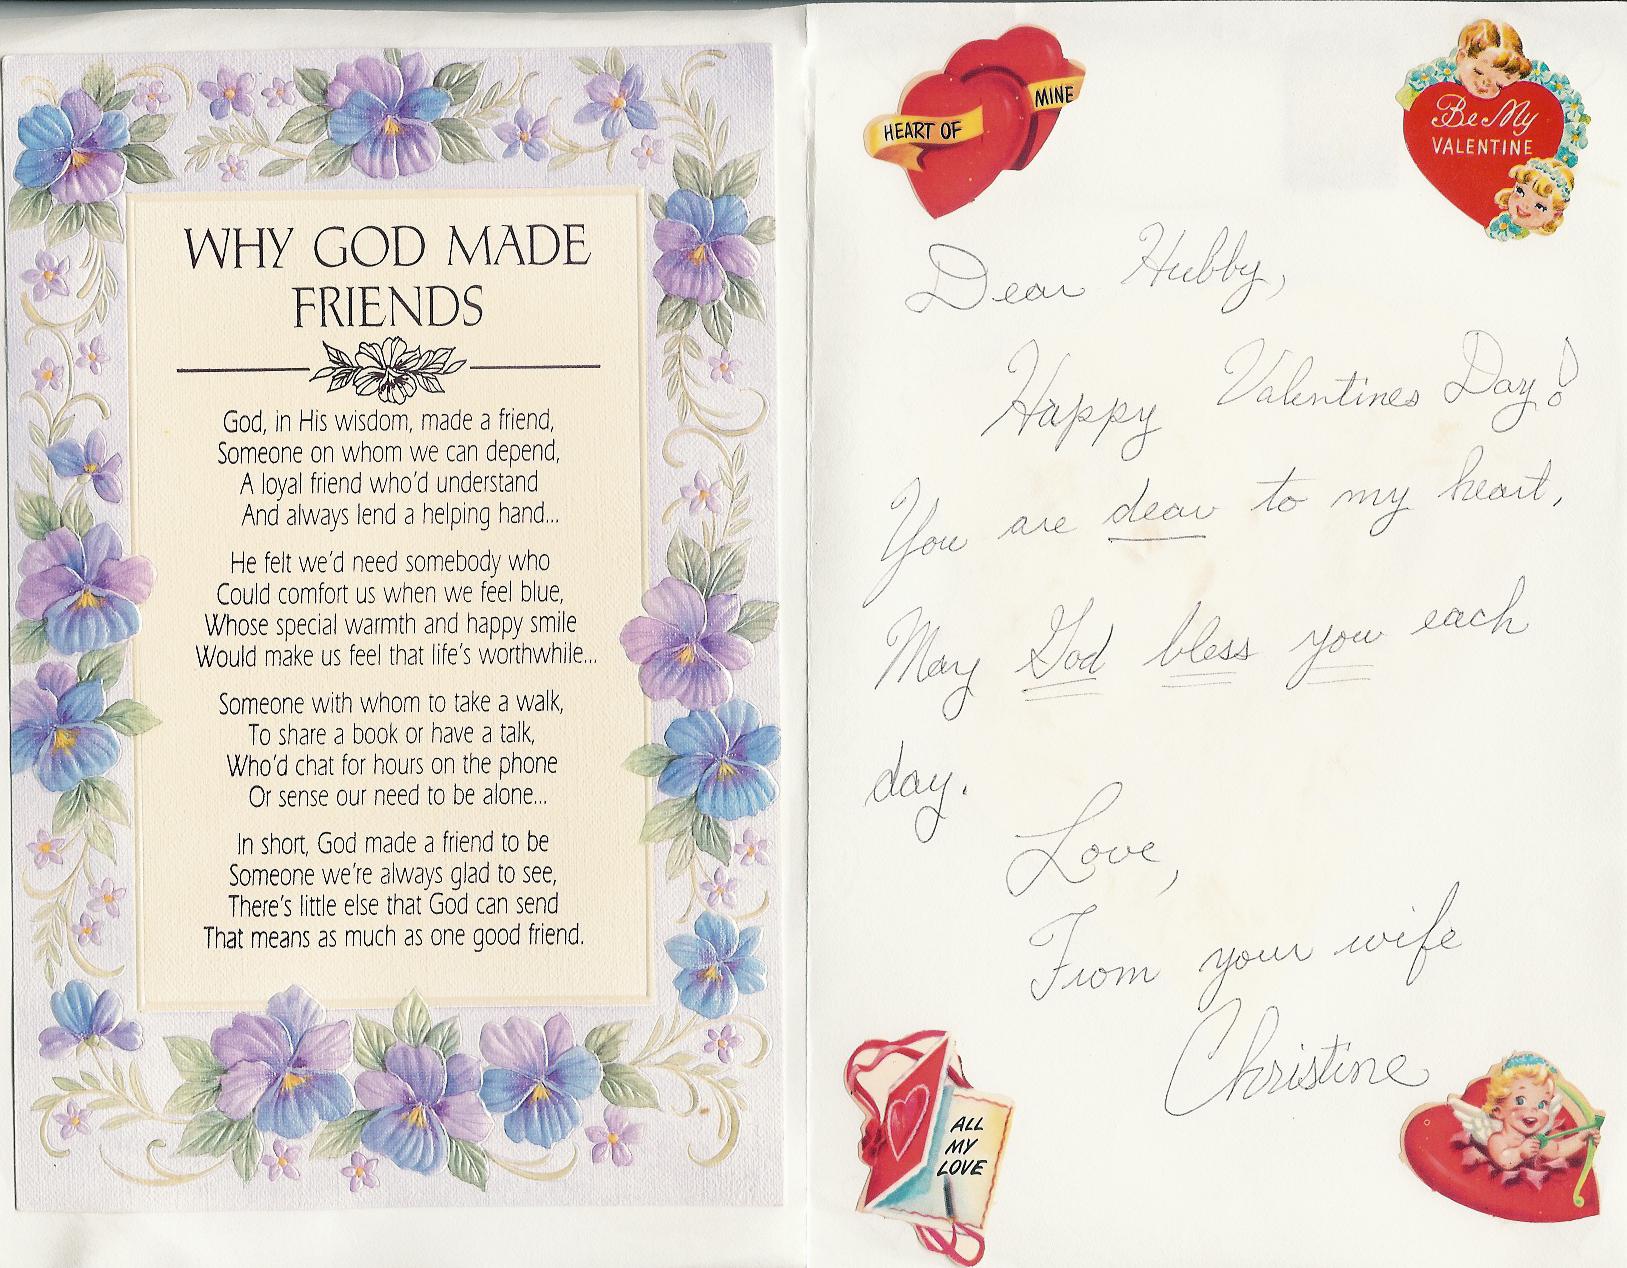 WHY GOD MADE
FRIENDS
God, in His wisdom, made a friend,
Someone on whom we can depend,
A loyal friend who'd understand
And always lend a helping hand...
He felt we'd need somebody who
Could comfort us when we feel blue,
Whose special warmth and happy smile
Would make us feel that life's worthwhile...
Someone with whom to take a walk,
To share a book or have a talk,
Who'd chat for hours on the phone
Or sense our need to be alone...
In short, God made a friend to be
Someone we're always glad to see,
There's little else that God can send
That means as much as one good friend.
HEART OF MINE
Be My
VALENTINE
Dear Hubby,
Happy Valentines Day!
You are dear to my heart,
May God bless you each
day.
Love,
From your wife
Christine
ALL
MY
LOVE